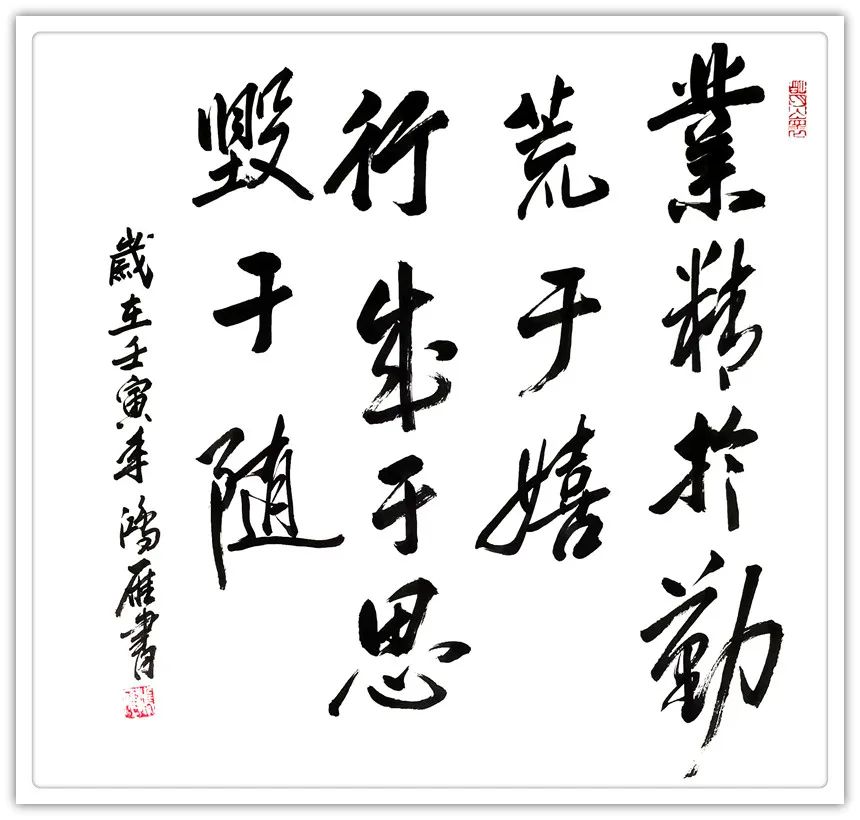 業精於勤
荒于嬉
行成于思
毁于随
歲在壬寅年鴻雁書